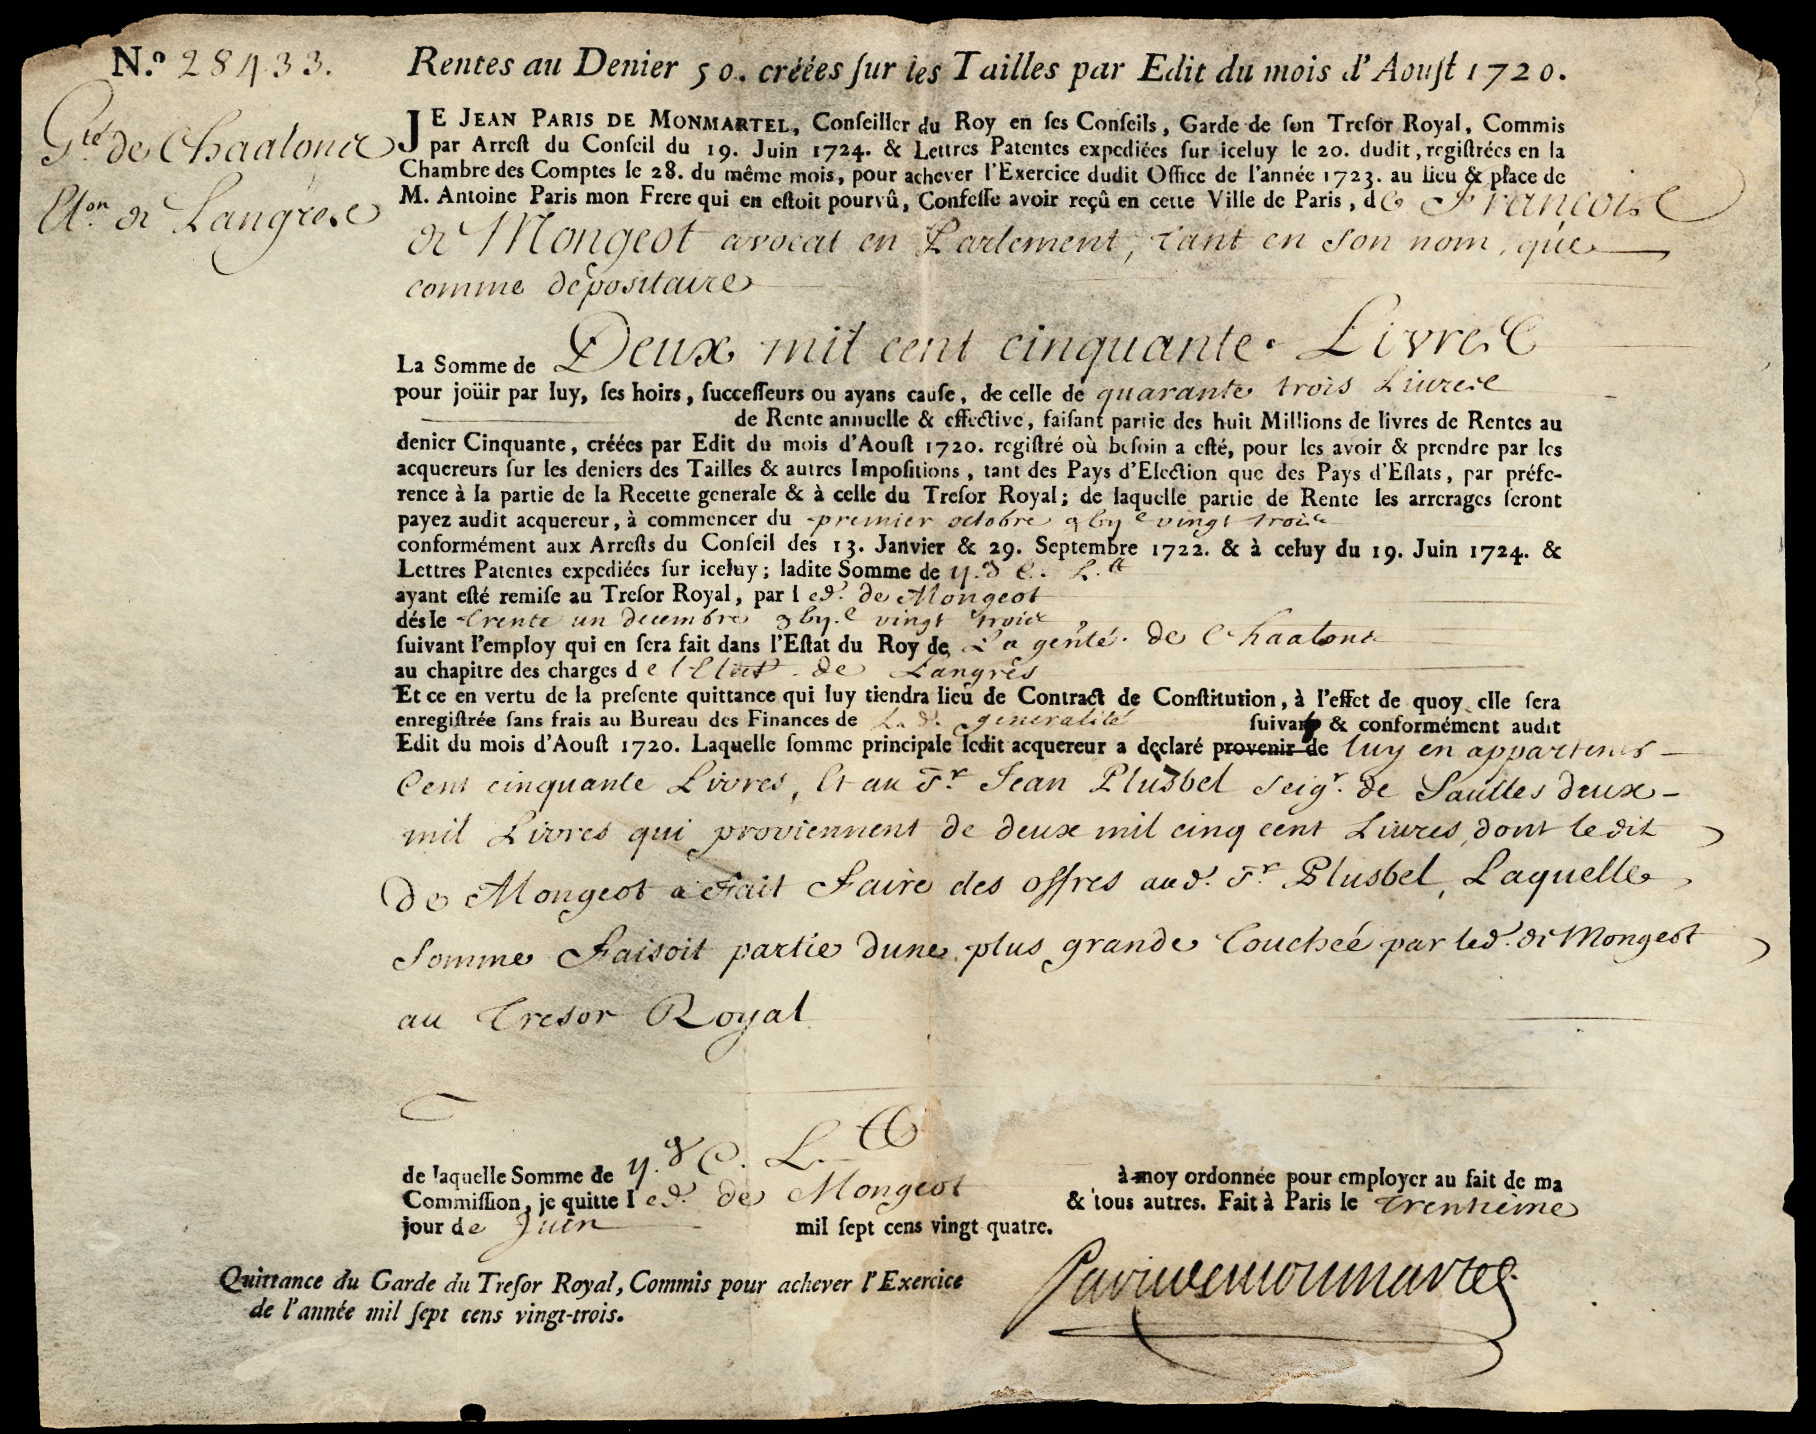 N.º 28433.
Rentes au Denier 50. créées ſur les Tailles par Edit du mois d'Aouſt 1720.
G.té de Chaalons
El.on de Langres
JE JEAN PARIS DE MONMARTEL, Conſeiller du Roy en ſes Conſeils, Garde de ſon Treſor Royal, Commis
par Arreſt du Conſeil du 19. Juin 1724. & Lettres Patentes expediées ſur iceluy le 20. dudit, regiſtrées en la
Chambre des Comptes le 28. du même mois, pour achever l'Exercice dudit Office de l'année 1723. au lieu & place de
M. Antoine Paris mon Frere qui en eſtoit pourvû, Confeſſe avoir reçû en cette Ville de Paris, de François
de Mongeot avocat en Parlement, tant en son nom, que
comme dépositaire
La Somme de Deux mil cent cinquante Livres
pour joüir par luy, ſes hoirs, ſucceſſeurs ou ayans cauſe, de celle de quarante trois Livres
de Rente annuelle & effective, faiſant partie des huit Millions de livres de Rentes au
denier Cinquante, créées par Edit du mois d'Aouſt 1720. regiſtré où beſoin a eſté, pour les avoir & prendre par les
acquereurs ſur les deniers des Tailles & autres Impoſitions, tant des Pays d'Election que des Pays d'Eſtats, par préfe-
rence à la partie de la Recette generale & à celle du Treſor Royal; de laquelle partie de Rente les arrerages ſeront
payez audit acquereur, à commencer du premier octobre vingt trois
conformément aux Arreſts du Conſeil des 13. Janvier & 29. Septembre 1722. & à celuy du 19. Juin 1724. &
Lettres Patentes expediées ſur iceluy; ladite Somme de
ayant eſté remiſe au Treſor Royal, par led. de Mongeot
dés le trente un decembre vingt trois
ſuivant l'employ qui en ſera fait dans l'Eſtat du Roy de La g.nlité. de Chaalons
au chapitre des charges de l'Elect. de Langres
Et ce en vertu de la preſente quittance qui luy tiendra lieu de Contract de Conſtitution, à l'effet de quoy elle ſera
enregiſtrée ſans frais au Bureau des Finances de La d. generalité ſuivant & conformément audit
Edit du mois d'Aouſt 1720. Laquelle ſomme principale ledit acquereur a declaré provenir de luy en appartenir
Cent cinquante Livres, Et au S.r Jean Plusbel Seig.r de Saulles deux
mil Livres qui proviennent de deux mil cinq cent Livres, dont le dit
de Mongeot a fait faire des offres aud. S.r Plusbel, Laquelle
somme faisoit partie dune plus grande Touchée par led. de Mongeot
au Tresor Royal
de laquelle Somme de à moy ordonnée pour employer au fait de ma
Commiſſion, je quitte led. de Mongeot & tous autres. Fait à Paris le trentième
jour de Juin mil ſept cens vingt quatre.
Quittance du Garde du Treſor Royal, Commis pour achever l'Exercice
de l'année mil ſept cens vingt-trois.
Parisdemonmartel